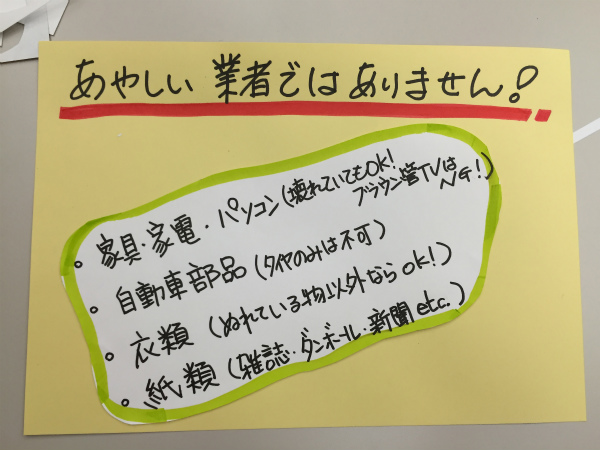 あやしい業者ではありません!
・家具・家電・パソコン(壊れていてもOK! ブラウン管TVはNG!)
・自動車部品(タイヤのみは不可)
・衣類(ぬれている物以外ならOK!)
・紙類(雑誌・ダンボール・新聞etc.)